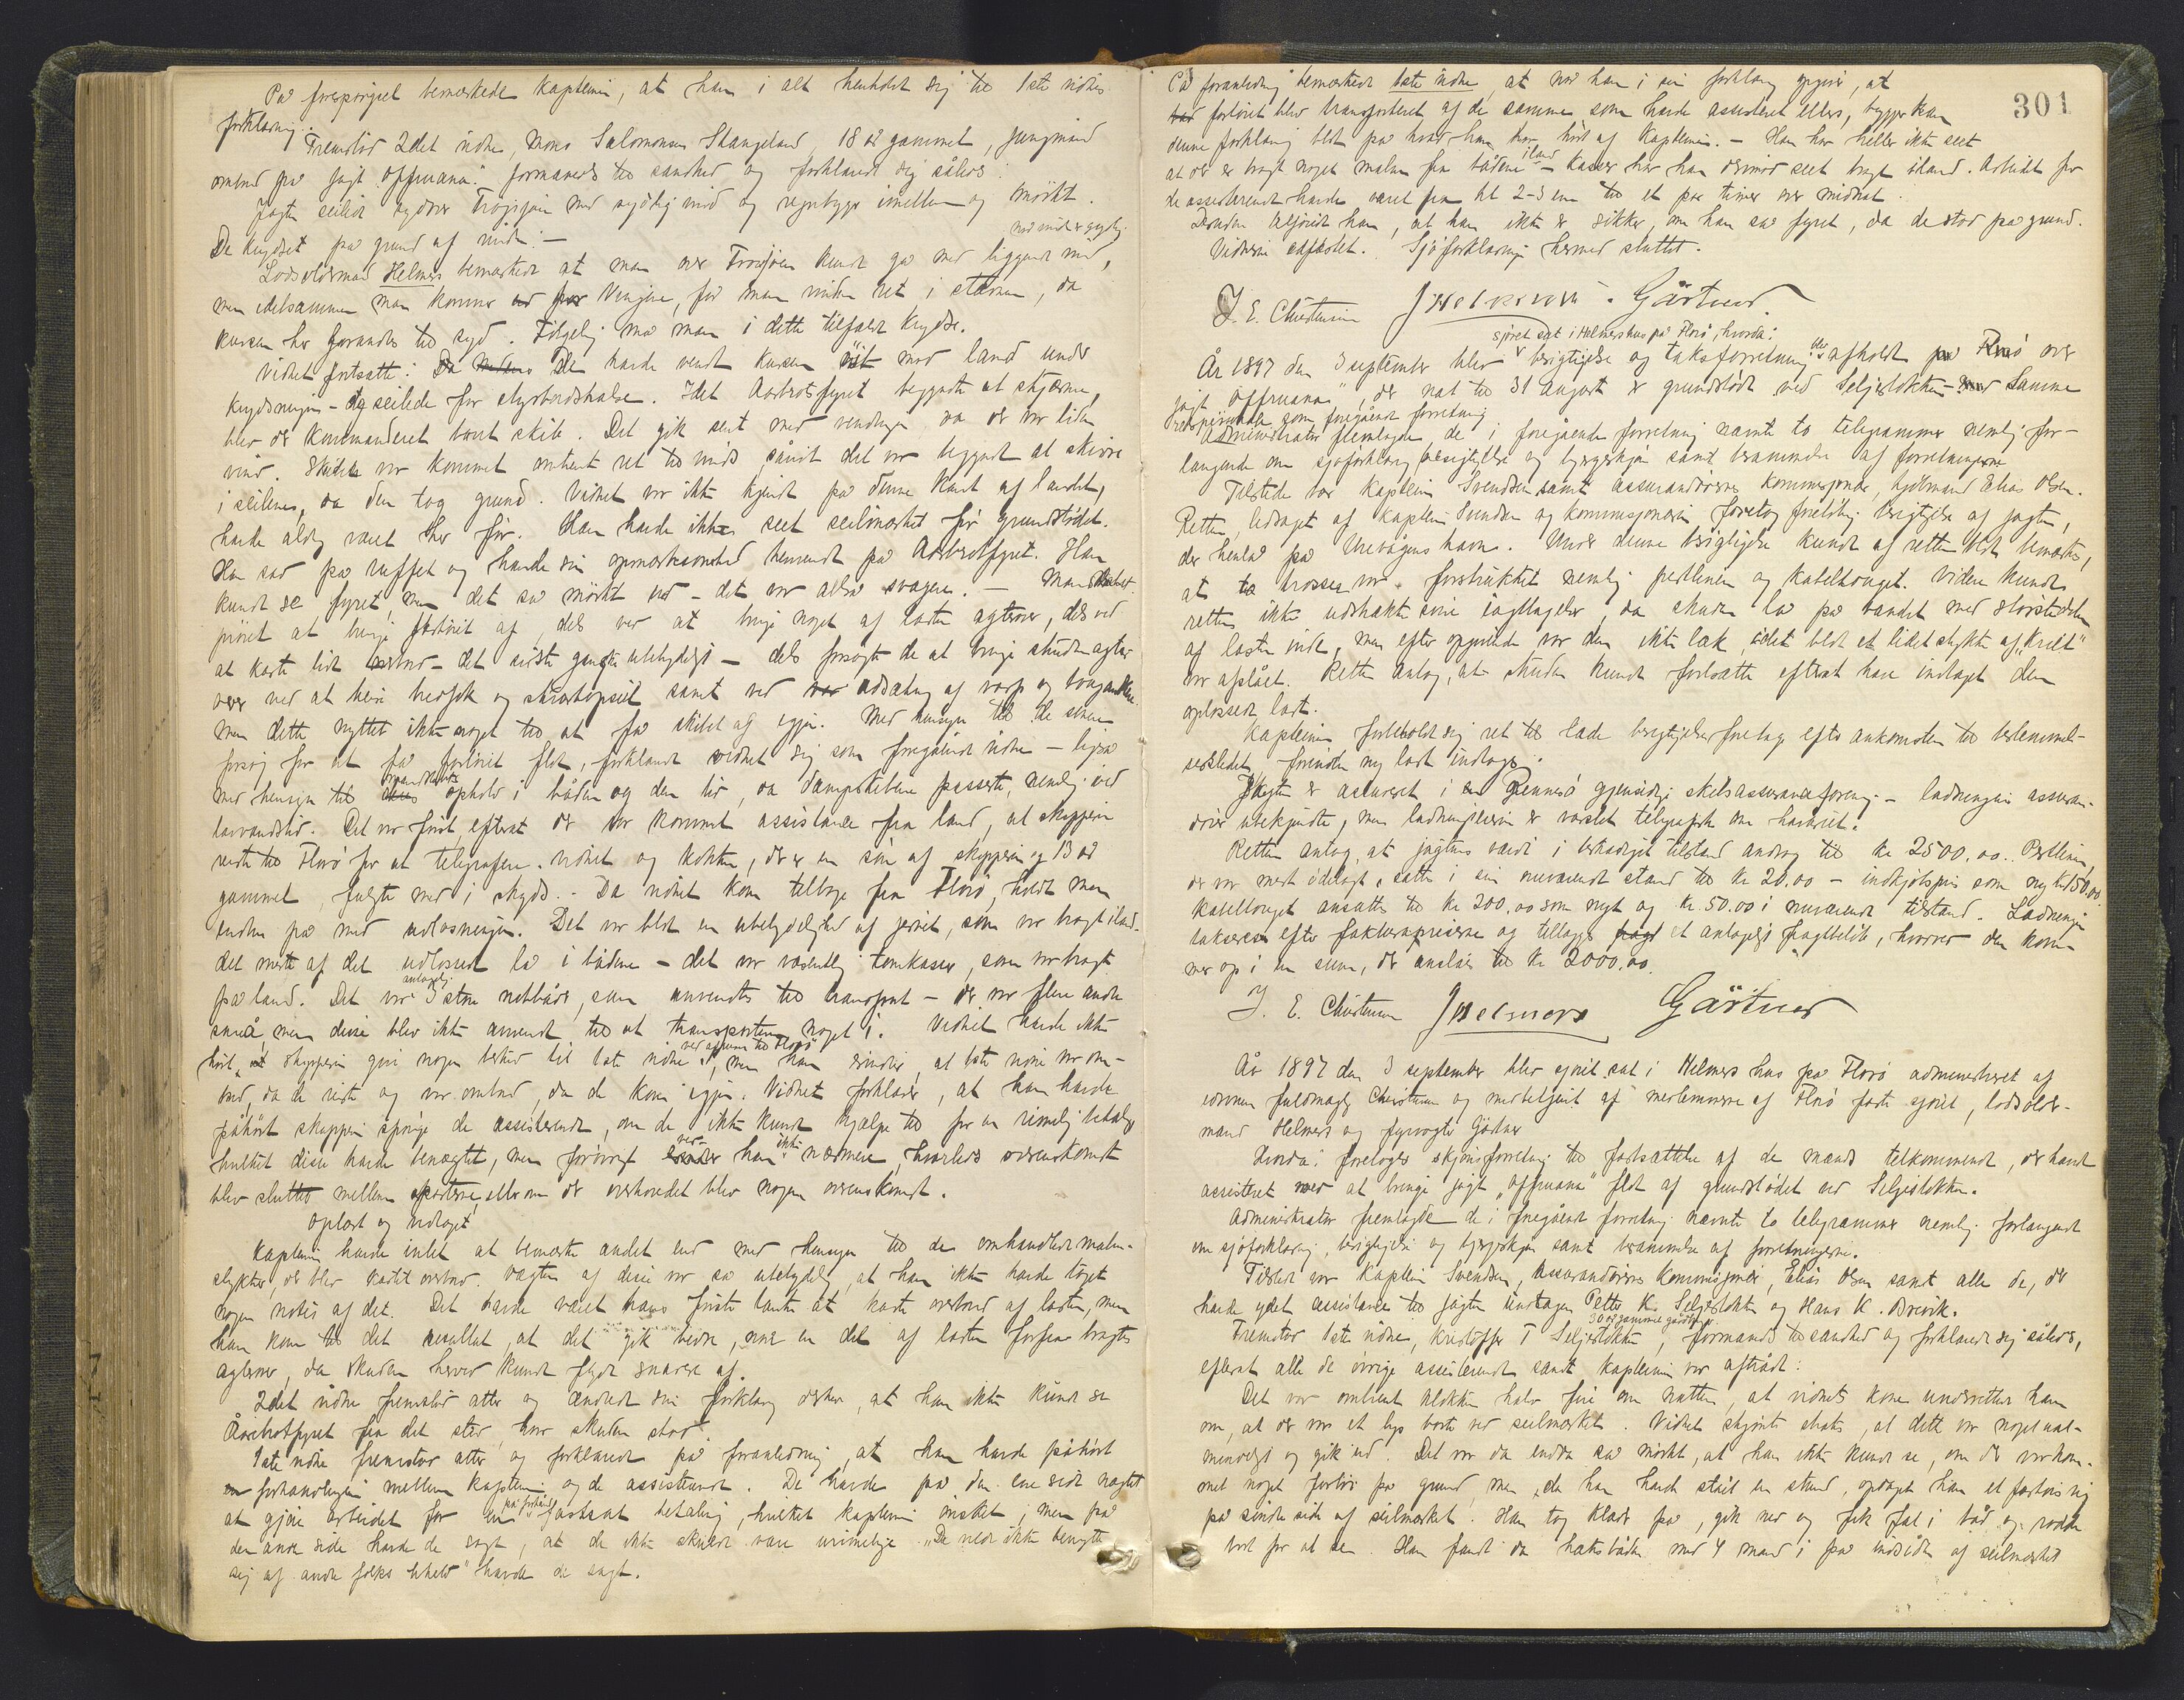 På forespørgsel bemærkede kapteinen, at han i alt henholdt sig til 1ste vidnes
forklaring.
Fremstod 2det vidne, Mons Salomonsen Skangeland, 18 år gammel, jungmand
ombord på jagt "Offmana". formanedes til sandhed og forklarede sig således:
Jagten seilede sydover Frøisjøen med sydlig vind og regnbyger imellem og mørkt.
De krydset på grund af vinden. –
Lodsolderman Helmers bemærkede at man over Frøisjøen kunde gå med liggende vind, når vind er sydlig
men idetsamme man kommer ud for Vingene, får man vinden ret i stævnen, da
kursen her forandres til syd. Følgelig må man i dette tilfælde krydse.
Vidnet fortsatte: De havde vendt kursen ret mod land under
krydsningen – og seilede for styrbordshalse. Idet Aarbrotfyret begyndte at skjærme,
blev der kommanderet vend skib. Det gik sent med vendingen da der var liden
vind. Skuden var kommet omtrent ret til vinds såvidt det var begyndt at skivre
i seilene, da den tog grund. Vidnet var ikke kjendt på denne kant af landet,
havde aldrig været her før. Han havde ikke seet seilmærket før grundstødet.
Han sad på ruffet og havde sin opmærksomhed henvendt på Aarbrotfyret. Han
kunde se fyret, men det så mørkt ud – det var altså svagere. – Mandskabet
prøvet at bringe fartøiet af, dels ved at bringe noget af lasten agterover, dels ved
at kaste lidt overbord – det sidste ganske ubetydeligt – dels forsøgte de at bringe skuden agter
over ved at heise bredfok og skværtopseil samt ved udsætning af varp og tougankere
men dette nyttet ikke noget til at få skibet af igjen. Med hensyn til de senere
forsøg for at få fartøiet flot, forklarede vidnet sig som foregående vidne – ligeså
med hensyn til mandskabets ophold i båden og den tid, da dampskibene passerte, nemlig ved
lavvandstid. Det var først, efterat der var kommet assistance fra land, at skipperen
reiste til Florø for at telegrafere. Vidnet og kokken, der er en søn af skipperen og 13 år
gammel, fulgte med i skyds. – Da vidnet kom tilbage fra Florø, holdt man
endnu på med udlosningen. Det var blot en ubetydelighed af jernet, som var bragt iland.
det meste af det udlossede lå i bådene – det var væsentlig tomkasser, som var bragt
på land. Det var antagelig 3 store notbåde, som anvendtes til transport – der var flere andre
små, men disse blev ikke anvendt til at transportere noget i. Vidnet havde ikke
hørt, at skipperen gav nogen besked til 1ste vidne ved afreisen til Florø, men han erindrer, at 1ste vidne var om-
bord, da de reiste og var ombord, da de kom igjen. Vidnet forklarer, at han havde
påhørt skipperen spørge de assisterende, om de ikke kunde hjælpe til for en rimelig betaling
hvilket disse havde benægtet, men forøvrigt ved han ikke nærmere, hvorledes overenskomst
blev sluttet mellem parterne, eller om der overhovedet blev nogen overenskomst.
Oplæst og vedtaget
Kapteinen havde intet at bemærke andet end med hensyn til de omhandlede malm-
stykker, der blev kastet overbord. Vægten af disse var så ubetydelig, at han ikke havde taget
nogen notis af det. Det havde været hans første tanke at kaste overbord af lasten, men
han kom til det resultat, at det gik bedre, naar en del af lasten forfra bragtes
agterover, da skuden herved kunde flyde snarere af.
2det vidne fremstod atter og ændrede sin forklaring derhen, at han ikke kunde se
Aarebrotfyret fra det sted, hvor skuden stod.
1ste vidne fremstod atter og forklarede på foranledning, at han havde påhørt
forhandlingen mellem kapteinen og de assisterende. De havde på den ene side nægtet
at gjøre arbeidet for en på forhånd fastsat betaling, hvilket kapteinen ønsket, men på
den anden side havde de sagt, at de ikke skulde være urimelige. "De vilde ikke benytte
sig af andre folks uheld" havde de sagt.
301
På foranledning bemærkede 1ste vidne, at når han i sin forklaring opgiver, at
fartøiet blev transporteret af de samme som havde assisteret ellers, bygger han
denne forklaring blot på hvad han har hørt af kapteinen. – Han har heller ikke seet
at der er bragt noget malm fra bådene iland – kasser har han derimod seet bragt iland. Arbeidet for
de assisterende havde varet fra kl 2-3 em til et par timer over midnat.
Desuden tilføiede han, at han ikke er sikker, om han så fyret, da de stod på grund.
Vidnerne edfæstet. Sjøforklaringen hermed sluttet.
J. E. Christensen J Helmers. Gärtner
År 1897 den 3 september blev sjøret sat i Helmers hus på Florø, hvorda: besigtigelse og taksforretning der afholdt på Florø over
jagt "Offmana", der nat til 31 august er grundstødt ved Seljestokken – Samme
retspersonale som foregående forretning
Administrator fremlagde de i foregående forretning nævnte to telegrammer nemlig for-
langende om sjøforklaring, besigtigelse og bjergeskjøn samt berammelse af forretningerne.
Tilstede var kaptein Svendsen samt assurandørernes kommisjonær, kjøbmand Elias Olsen.
Retten, ledsaget af kaptein Svendsen og kommisjonæren foretog foreløbig besigtigelse af jagten,
der henlå på Unevågens havn. Under denne besigtigelse kunde af retten blot bemærkes,
at to trosser var forstrukket nemlig pertlinen og kabeltouget. Videre kunde
retten ikke udstrække sine iagttagelser, da skuden lå på vandet med størstedelen
af lasten inde, men efter opgivende var den ikke læk, idet blot et lidet stykke af "kielen"
var afslået. Retten antog, at skuden kunde fortsætte efterat have indtaget den
oplossede last.
Kapteinen forbeholdt sig ret til lade besigtigelse foretage efter ankomsten til bestemmel-
sesstedet, forinden ny last indtages.
Jagten er assureret i Rennesø gjensidige skibsassuranceforening – ladningens assuran-
dører ubekjendte, men ladningseieren er varslet telegrafisk om havariet.
Retten antog, at jagtens værdi i beskadiget tilstand androg til kr 2500.00. Pertlinen,
der var mest ødelagt, sattes i sin nuværende stand til kr 20.00 – indkjøbspris som ny kr 150.00
kabeltouget ansattes til kr 200.00 som nyt og kr. 50.00 i nuværende tilstand. Ladningen
takseres efter fakturapriserne og tillagt et antageligt fragtbeløb, hvorved den kom-
mer op i en sum, der anslåes til kr 2000.00.
J. E. Christensen J Helmers Gärtner
År 1897 den 3 september blev sjøret sat i Helmers hus på Florø administreret af
edsvoren fuldmægtig Christensen og medbetjent af medlemmerne af Florø faste sjøret, lodsolder-
mand Helmers og fyrvogter Gärtner
Hvorda: foretoges skjønsforretning til fastsættelse af de mænds tilkommende, der havde
assisteret med at bringe jagt "Offmana" flot af grundstødet ved Seljestokken.
Administrator fremlagde de i foregående forretning nævnte to telegrammer nemlig forlangende
om sjøforklaring, besigtigelse og bjergeskjøn samt berammelse af forretningerne.
Tilstede var kaptein Svendsen, assurandørernes kommisjonær, Elias Olsen samt alle de, der
havde ydet assistance til jagten undtagen Petter K. Seljestokken og Hans K. Brevik.
Fremstod 1ste vidne, Kristoffer T Seljestokken, 30 år gammel gårdbruger. formanedes til sandhed og forklarede sig således,
efterat alle de øvrige assisterende samt kapteinen var aftrådt:
Det var omtrent klokken halv fire om natten, at vidnets kone underrettet ham
om, at der var et lys borte ved seilmærket. Vidnet skjønte straks, at dette var noget ual-
mindeligt og gik ud. Det var da endnu så mørkt, at han ikke kunde se, om der var kom-
met noget fartøi på grund, men da han havde stået en stund, opdaget han et fartøis rig
på søndre side af seilmærket. Han tog klær på, gik ned og fik fat i båd og rodde
bort for at se. Han fandt da hæksbåden med 4 mand i på indsiden af seilmærket